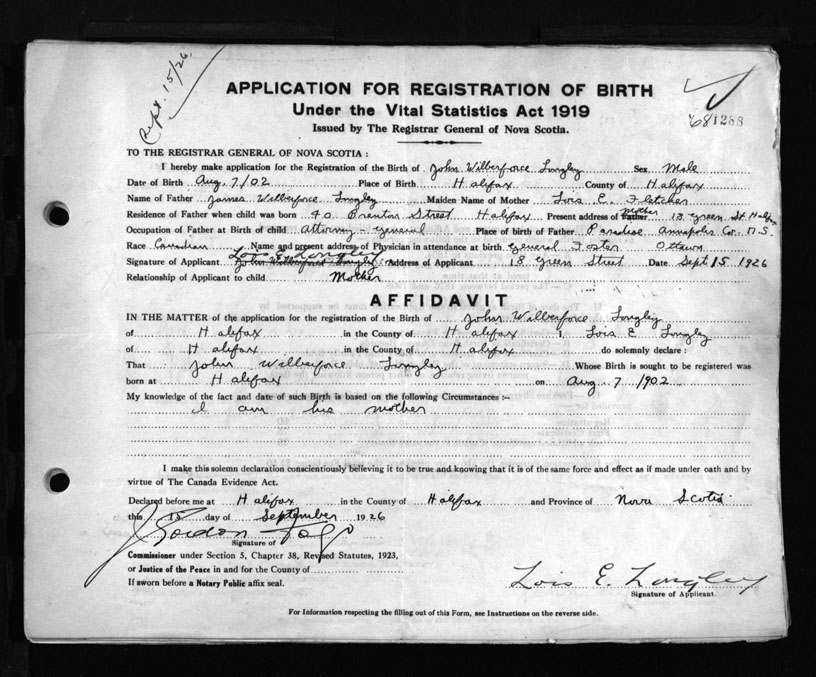 Rept. 15/26
APPLICATION FOR REGISTRATION OF BIRTH
Under the Vital Statistics Act 1919
Issued by The Registrar General of Nova Scotia.
681288
TO THE REGISTRAR GENERAL OF NOVA SCOTIA:
I hereby make application for the Registration of the Birth of John Wilberforce Longley Sex Male
Date of Birth Aug. 7/02 Place of Birth Halifax County of Halifax
Name of Father James Wilberforce Longley Maiden Name of Mother Lois E. Fletcher
Residence of Father when child was born 40 Brenton Street Halifax Present address of Father mother 18 Green St. Halifax
Occupation of Father at Birth of child Attorney-General Place of birth of Father Paradise Annapolis Co. N.S.
Race Canadian Name and present address of Physician in attendance at birth General Foster Ottawa
Signature of Applicant Lois E. Longley John Wilberforce Longley Address of Applicant 18 Green Street Date Sept. 15 1926
Relationship of Applicant to child Mother
AFFIDAVIT
IN THE MATTER of the application for the registration of Birth of John Wilberforce Longley
of Halifax in the County of Halifax I, Lois E Longley
of Halifax in the County of Halifax do solemnly declare:
That John Wilberforce Longley Whose Birth is sought to be registered was
born at Halifax on Aug 7 1902
My knowledge of the fact and date of such Birth is based on the following Circumstances:-
I am his mother
I make this solemn declaration conscientiously believing it to be true and knowing that it is of the same force and effect as if made under oath and by
virtue of The Canada Evidence Act.
Declared before me at Halifax in the County of Halifax and Province of Nova Scotia
this 15 day of September 1926
Gordon
Signature of
Commissioner under Section 5, Chapter 38, Revised Statutes, 1923,
or Justice of the Peace in and for the County of
If sworn before a Notary Public affix seal.
Lois E. Longley
Signature of Applicant.
For Information respecting the filling out of this Form, see Instructions on the reverse side.